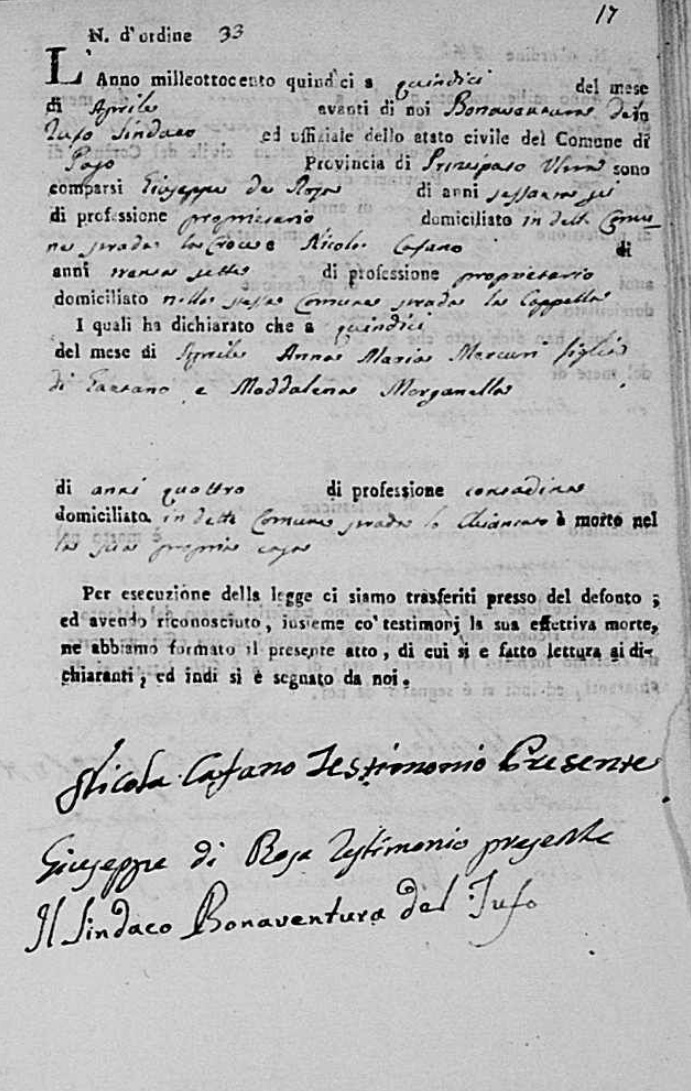 17
N. d'ordine 33
L'Anno milleottocento quindici a quindici del mese
di Aprile avanti di noi Bonaventura del
Tufo Sindaco ed uffiziale dello stato civile del Comune di
Provincia di Principato Ulteriore sono
comparsi Giuseppe de Rosa di anni sessanta sei
di professione proprietario domiciliato in detta Comu-
ne strada la Croce e Nicola Cafano di
anni trenta sette di professione proprietario
domiciliato nella stessa Comune strada la Cappella
I quali ha dichiarato che a quindici
del mese di Aprile Anna Maria Mercuri figlia
di Gaetano e Maddalena Morganella
di anni quattro di professione contadina
domiciliata in detta Comune strada lo è morto nel
la sua propria casa
Per esecuzione della legge ci siamo trasferiti presso del defonto ;
ed avendo riconosciuto, insieme co' testimonj la sua effettiva morte,
ne abbiamo formato il presente atto, di cui si e fatto lettura ai di-
chiaranti, ed indi si è segnato da noi.
Nicola Cafano Testimonio Presente
Giuseppe di Rosa Testimonio presente
Il Sindaco Bonaventura del Tufo